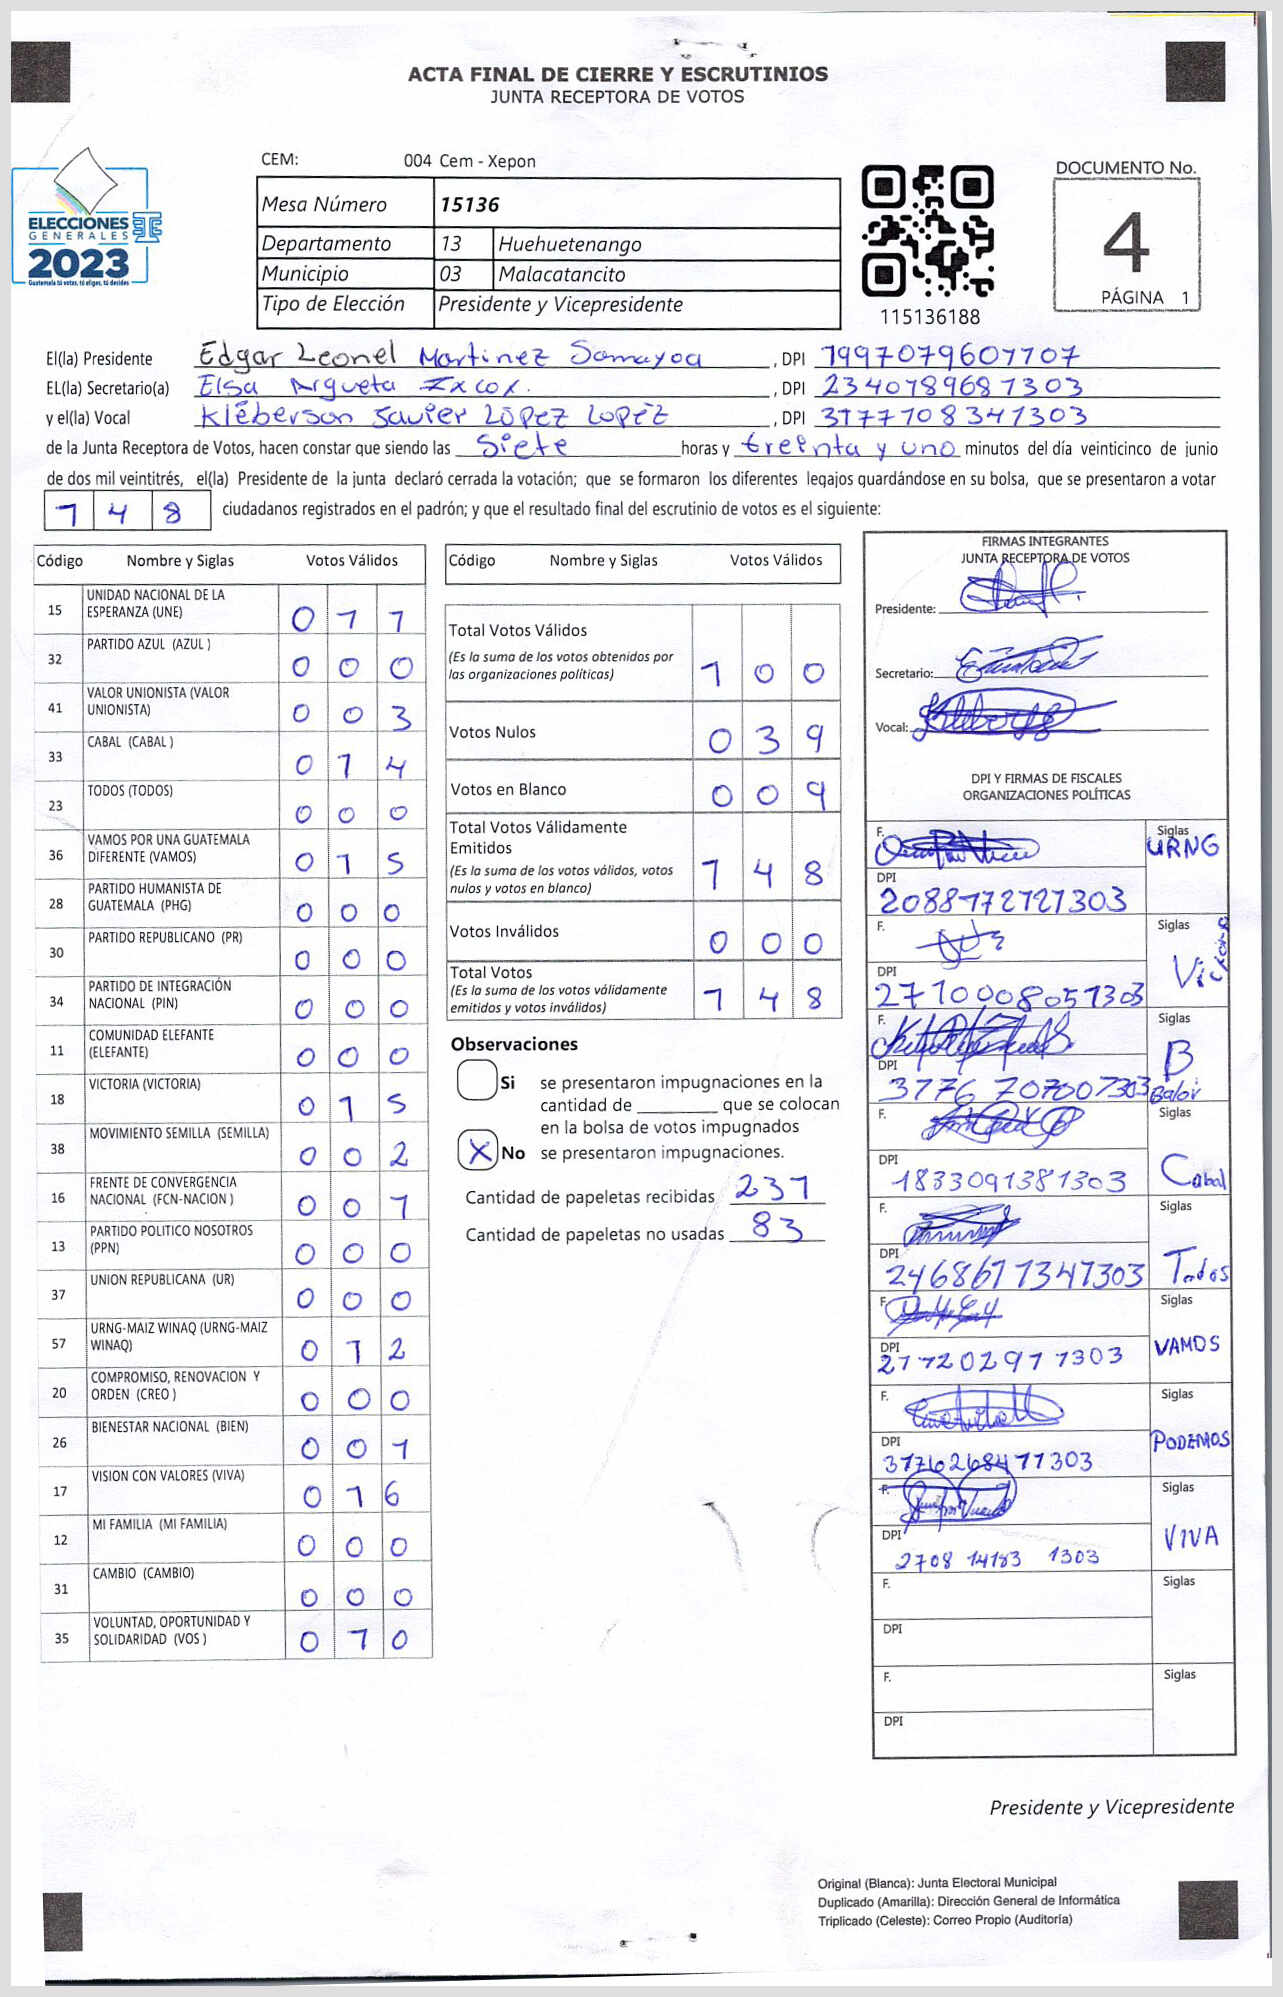 ACTA FINAL DE CIERRE Y ESCRUTINIOS
JUNTA RECEPTORA DE VOTOS
ELECCIONES
GENERALES
2023
Guatemala tú votas, tú eliges, tú decides
CEM: 004 Cem - Xepon
Mesa Número 15136
Departamento 13 Huehuetenango
Municipio 03 Malacatancito
Tipo de Elección Presidente y Vicepresidente
115136188
DOCUMENTO No.
4
PÁGINA 1
El(la) Presidente Edgar Leonel Martinez Samayoa, DPI
EL(la) Secretario(a) Elsa Argueta Ixcox., DPI 2340189681303
y el(la) Vocal Kléberson Javier López Lopéz, DPI 3177108341303
de la Junta Receptora de Votos, hacen constar que siendo las Siete horas y treinta y uno minutos del día veinticinco de junio
de dos mil veintitrés, el(la) Presidente de la junta declaró cerrada la votación; que se formaron los diferentes legajos guardándose en su bolsa, que se presentaron a votar
148 ciudadanos registrados en el padrón; y que el resultado final del escrutinio de votos es el siguiente:
Código Nombre y Siglas Votos Válidos
15 UNIDAD NACIONAL DE LA ESPERANZA (UNE) 011
32 PARTIDO AZUL (AZUL ) 000
41 VALOR UNIONISTA (VALOR UNIONISTA) 003
33 CABAL (CABAL ) 014
23 TODOS (TODOS) 000
36 VAMOS POR UNA GUATEMALA DIFERENTE (VAMOS) 015
28 PARTIDO HUMANISTA DE GUATEMALA (PHG) 000
30 PARTIDO REPUBLICANO (PR) 000
34 PARTIDO DE INTEGRACIÓN NACIONAL (PIN) 000
11 COMUNIDAD ELEFANTE (ELEFANTE) 000
18 VICTORIA (VICTORIA) 015
38 MOVIMIENTO SEMILLA (SEMILLA) 002
16 FRENTE DE CONVERGENCIA NACIONAL (FCN-NACION ) 001
13 PARTIDO POLITICO NOSOTROS (PPN) 000
37 UNION REPUBLICANA (UR) 000
57 URNG-MAIZ WINAQ (URNG-MAIZ WINAQ) 012
20 COMPROMISO, RENOVACION Y ORDEN (CREO ) 000
26 BIENESTAR NACIONAL (BIEN) 001
17 VISION CON VALORES (VIVA) 016
12 MI FAMILIA (MI FAMILIA) 000
31 CAMBIO (CAMBIO) 000
35 VOLUNTAD, OPORTUNIDAD Y SOLIDARIDAD (VOS ) 010
Código Nombre y Siglas Votos Válidos
Total Votos Válidos
(Es la suma de los votos obtenidos por
las organizaciones políticas) 100
Votos Nulos 039
Votos en Blanco 009
Total Votos Válidamente
Emitidos
(Es la suma de los votos válidos, votos
nulos y votos en blanco) 148
Votos Inválidos 000
Total Votos
(Es la suma de los votos válidamente
emitidos y votos inválidos) 148
Observaciones
Si se presentaron impugnaciones en la
cantidad de ________ que se colocan
en la bolsa de votos impugnados
X No se presentaron impugnaciones.
Cantidad de papeletas recibidas 231
Cantidad de papeletas no usadas 83
FIRMAS INTEGRANTES
JUNTA RECEPTORA DE VOTOS
Presidente:
Secretario:
Vocal:
DPI Y FIRMAS DE FISCALES
ORGANIZACIONES POLÍTICAS
F. Siglas URNG
DPI 2088172121303
F. Siglas Victoria
DPI 2710008051303
F. Siglas B Balor
DPI
F. Siglas Cabal
DPI 1833091381303
F. Siglas Todos
DPI 2468611341303
F. Siglas VAMOS
DPI
F. Siglas PODEMOS
DPI 3176268411303
F. Siglas VIVA
DPI 2708 14183 1303
F. Siglas
DPI
F. Siglas
DPI
Presidente y Vicepresidente
Original (Blanca): Junta Electoral Municipal
Duplicado (Amarilla): Dirección General de Informática
Triplicado (Celeste): Correo Propio (Auditoría)